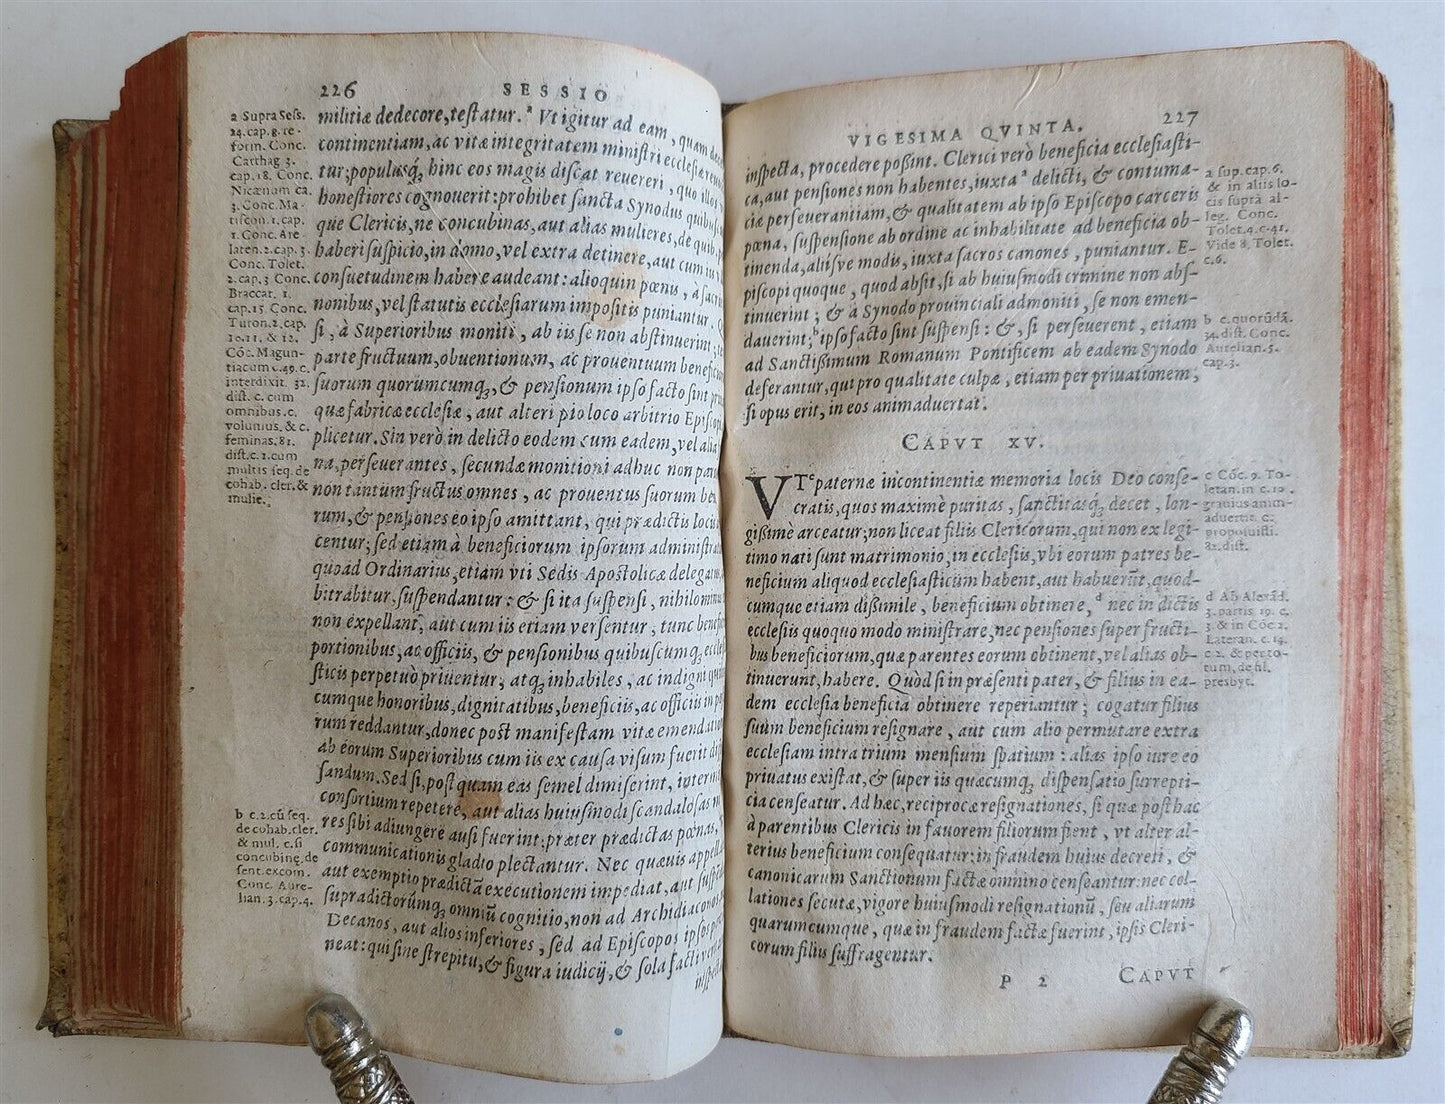 226 SESSIO
a Supra Sess.
24. cap. 8. re-
form. Conc.
Carthag 3.
cap. 18. Conc.
Nicænum ca.
3. Conc. Ma-
tiscon. 1. cap.
1. Conc. Are-
laten. 2. cap. 3
Conc. Tolet.
2. cap. 3 Conc.
Braccar. 1.
cap. 15 Conc.
Turon. 2. cap.
10. 11. & 12.
Cōc. Magun-
tiacum c. 49. c.
interdixit. 32.
dist. c. cum
omnibus. c.
volumus. & c.
feminas. 81.
dist. c. 1. cum
multis seq. de
cohab. cler. &
mulie.
militiæ dedecore, testatur. ᵃ Vt igitur ad eam, quam dec
continentiam, ac vitæ integritatem ministri ecclesiæ reuo
tur; populusq́, hinc eos magis discat reuereri, quo illos
honestiores cognouerit: prohibet sancta Synodus quibus
que Clericis, ne concubinas, aut alias mulieres, de quib. p
haberi suspicio, in domo, vel extra detinere, aut cum iis
consuetudinem habere audeant: alioquin pœnis, à sacri
nonibus, vel statutis ecclesiarum impositis puniantur. Q
si, à Superioribus moniti, ab iis se non abstinuerint; te
parte fructuum, obuentionum, ac prouentuum benefici
suorum quorumcumq́, & pensionum ipso facto sint pri
quæ fabricæ ecclesiæ, aut alteri pio loco arbitrio Episcopi
plicetur. Sin verò in delicto eodem cum eadem, vel alia
na, perseuerantes, secundæ monitioni adhuc non par
non tantum fructus omnes, ac prouentus suorum ben
rum, & pensiones eo ipso amittant, qui prædictis locis
centur; sed etiam à beneficiorum ipsorum administrat
quoad Ordinarius, etiam vti Sedis Apostolicæ delegatus
bitrabitur, suspendantur: & si ita suspensi, nihilominus
non expellant, aut cum iis etiam versentur, tunc benefi
portionibus, ac officiis, & pensionibus quibuscumq́ eccle
sticis perpetuò priuentur, atq́ inhabiles, ac indigni qui
cumque honoribus, dignitatibus, beneficiis, ac officiis in po
rum reddantur, donec post manifestam vitæ emendatio
ab eorum Superioribus cum iis ex causa visum fuerit dis
sandum. Sed si, postquam eas semel dimiserint, interm
consortium repetere, aut alias huiusmodi scandalosas m
res sibi adiungere ausi fuerint: præter prædictas pœnas,
communicationis gladio plectantur. Nec quæuis appell
aut exemptio prædictā executionem impediat, aut suspē
supradictorūmq́ omniū cognitio, non ad Archidiaconos
Decanos, aut alios inferiores, sed ad Episcopos ipsos per
neat: qui sine strepitu, & figura iudicij, & sola facti veri
inspe
b c. 2. cū seq.
de cohab. cler.
& mul. c. si
concubinę. de
sent. excom.
Conc. Aure-
lian. 3. cap. 4.
VIGESIMA QVINTA. 227
inspecta, procedere possint. Clerici verò beneficia ecclesiasti-
ca, aut pensiones non habentes, iuxta ᵃ delicti, & contuma-
ciæ perseuerantiam, & qualitatem ab ipso Episcopo carceris
pœna, suspensione ab ordine ac inhabilitate ad beneficia ob-
tinenda, aliisve modis, iuxta sacros canones, puniantur. E-
piscopi quoque, quod absit, si ab huiusmodi crimine non abs-
tinuerint; & à Synodo prouinciali admoniti, se non emen-
dauerint; ᵇ ipso facto sint suspensi: &, si perseuerent, etiam
ad Sanctissimum Romanum Pontificem ab eadem Synodo
deferantur, qui pro qualitate culpæ, etiam per priuationem,
si opus erit, in eos animaduertat.
a sup. cap. 6.
& in aliis lo-
cis suprà al-
leg. Conc.
Tolet. 4. c. 41.
Vide 8. Tolet.
c. 6.
b c. quorūdā.
34. dist. Conc.
Aurelian. 5.
cap. 3.
CAPVT XV.
VTᶜ paternæ incontinentiæ memoria locis Deo conse-
cratis, quos maximè puritas, sanctitasq́ decet, lon-
gissimè arceatur; non liceat filiis Clericorum, qui non ex legi-
timo nati sunt matrimonio, in ecclesiis, vbi eorum patres be-
neficium aliquod ecclesiasticum habent, aut habuerūt, quod-
cumque etiam dissimile, beneficium obtinere, ᵈ nec in dictis
ecclesiis quoquo modo ministrare, nec pensiones super fructi-
bus beneficiorum, quæ parentes eorum obtinent, vel alias ob-
tinuerunt, habere. Quòd si in præsenti pater, & filius in ea-
dem ecclesia beneficia obtinere reperiantur; cogatur filius
suum beneficium resignare, aut cum alio permutare extra
ecclesiam intra trium mensium spatium: alias ipso iure eo
priuatus existat, & super iis quæcumq́ dispensatio surrepti-
cia censeatur. Ad hæc, reciprocæ resignationes, si quæ posthac
à parentibus Clericis in fauorem filiorum fient, vt alter al-
terius beneficium consequatur: in fraudem huius decreti, &
canonicarum Sanctionum factæ omnino censeantur: nec col-
lationes secutæ, vigore huiusmodi resignationū, seu aliarum
quarumcumque, quæ in fraudem factæ fuerint, ipsis Cleri-
corum filiis suffragentur.
c Cōc. 9. To-
letan. in c. 10.
grauius anim-
aduertit. c.
proposuisti.
82. dist.
d Ab Alexād.
3. partis 19. c.
3. & in Cōc 2.
Lateran. c. 14.
c. 2. & per to-
tum, de fil.
presbyt.
P 2 CAPVT